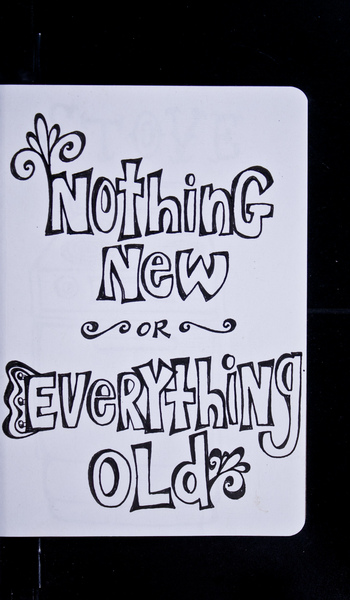 Nothing
New
OR
Everything
Old